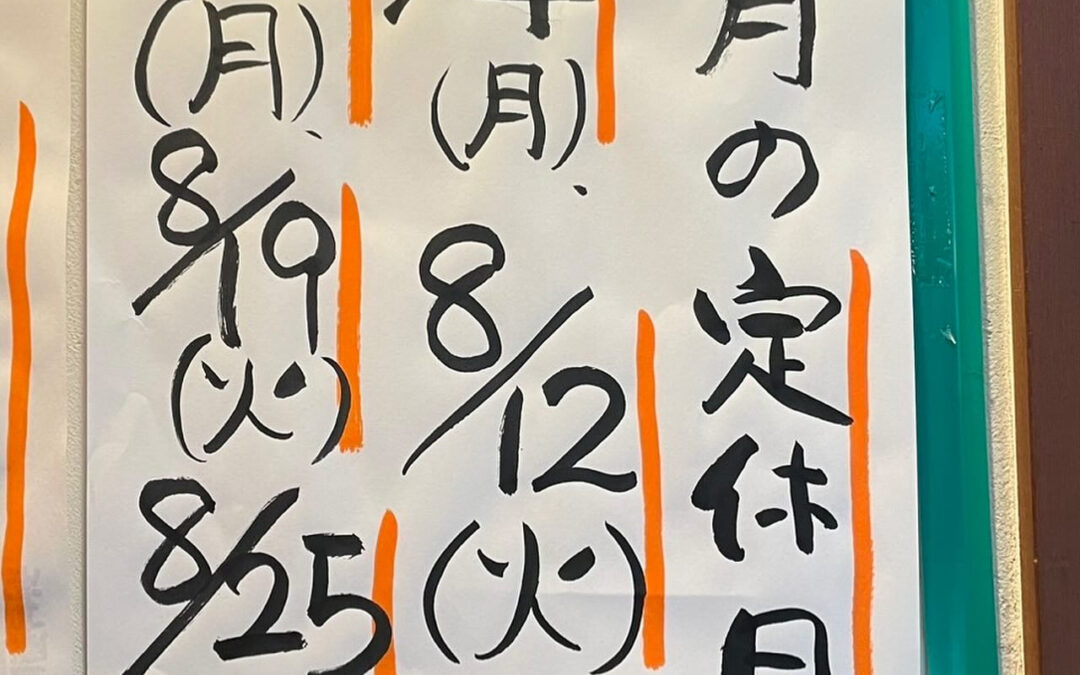 月の定休日
(月)、8/12(火)
(月)、8/19(火)8/25